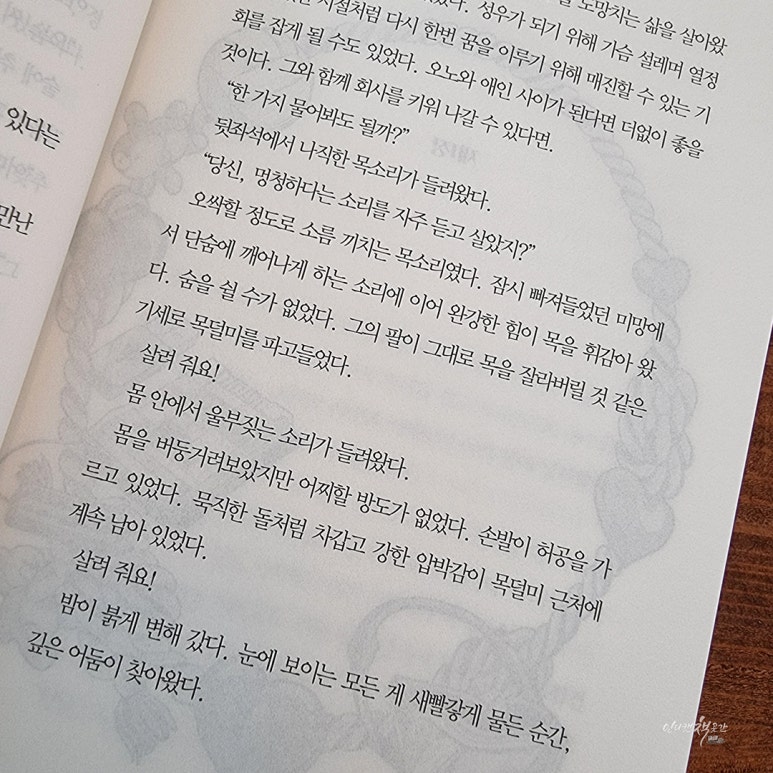 도망치는 삶을 살아왔
시절처럼 다시 한번 꿈을 이루기 위해 매진할 수 있는 기
성우가 되기 위해 가슴 설레며 열정
화를 잡게 될 수도 있었다. 오노와 애인 사이가 된다면 더없이 좋을
것이다. 그와 함께 회사를 키워 나갈 수 있다면.
“한 가지 물어봐도 될까?”
뒷좌석에서 나직한 목소리가 들려왔다.
“당신, 멍청하다는 소리를 자주 듣고 살았지?”
오싹할 정도로 소름 끼치는 목소리였다. 잠시 빠져들었던 미망에
서 단숨에 깨어나게 하는 소리에 이어 완강한 힘이 목을 휘감아 왔
다. 숨을 쉴 수가 없었다. 그의 팔이 그대로 목을 잘라버릴 것 같은
기세로 목덜미를 파고들었다.
살려 줘요!
몸 안에서 울부짖는 소리가 들려왔다.
몸을 버둥거려보았지만 어찌할 방도가 없었다. 손발이 허공을 가
르고 있었다. 묵직한 돌처럼 차갑고 강한 압박감이 목덜미 근처에
계속 남아 있었다.
살려 줘요!
밤이 붉게 변해 갔다. 눈에 보이는 모든 게 새빨갛게 물든 순간,
깊은 어둠이 찾아왔다.
있다는
만난